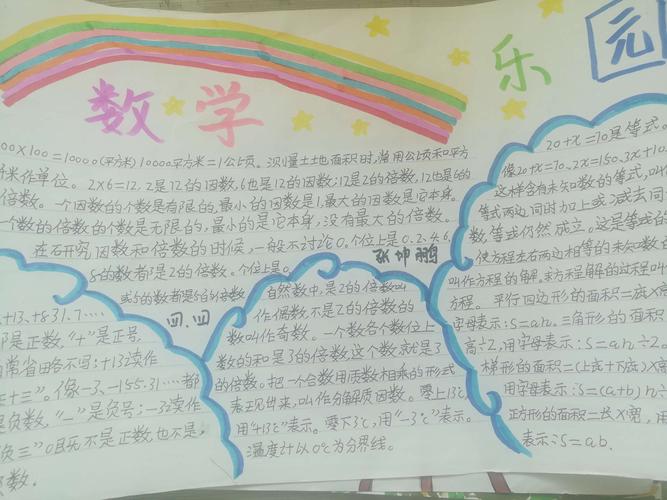 数学
乐园
元
00×100=10000(平方米) 10000平方米=1公顷。测量土地面积时,常用公顷和平方
米作单位。2×6=12, 2是12的因数,6也是12的因数;12是2的倍数,12也是6的
倍数。一个因数的个数是有限的,最小的因数是1,最大的因数是它本身。
一个数的倍数的个数是无限的,最小的是它本身,没有最大的倍数。
在研究因数和倍数的时候,一般不讨论0。个位上是0、2、4、6、
8的数都是2的倍数。个位上是0
或5的数都是5的倍数
张坤鹏
四.四
+13、+8.31.7....
都是正数,"+"是正号
常省略不写:+13读作
正十三"。像-3、-155.31....都
是负数,"-"是负号;-3读作
负三"0既不是正数,也不是
数。
自然数中,是2的倍数叫
作偶数,不是2的倍数的
数叫作奇数。一个数各个数位上
数的和是3的倍数这个数就是3
的倍数。把一个合数用质数相乘的形式
表现出来,叫作分解质因数。零上13℃,
用"+13℃"表示。零下3℃,用"-3℃"表示。
温度计以0℃为分界线。
20+x=70是等式。
像20+x=70、2x=150、3x+10
这样含有未知数的等式,叫
等式两边同时加上或减去同
数,等式仍然成立。这是等式的
使方程左右两边相等的未知数
叫作方程的解。求方程解的过程叫
方程。平行四边形的面积=底×
字母表示:S=ah。三角形的面积
高÷2,用字母表示:S=ah÷2。
梯形的面积=(上底+下底)×
用字母表示:S=(a+b)h÷
方形的面积=长×宽,用
表示:S=ab.